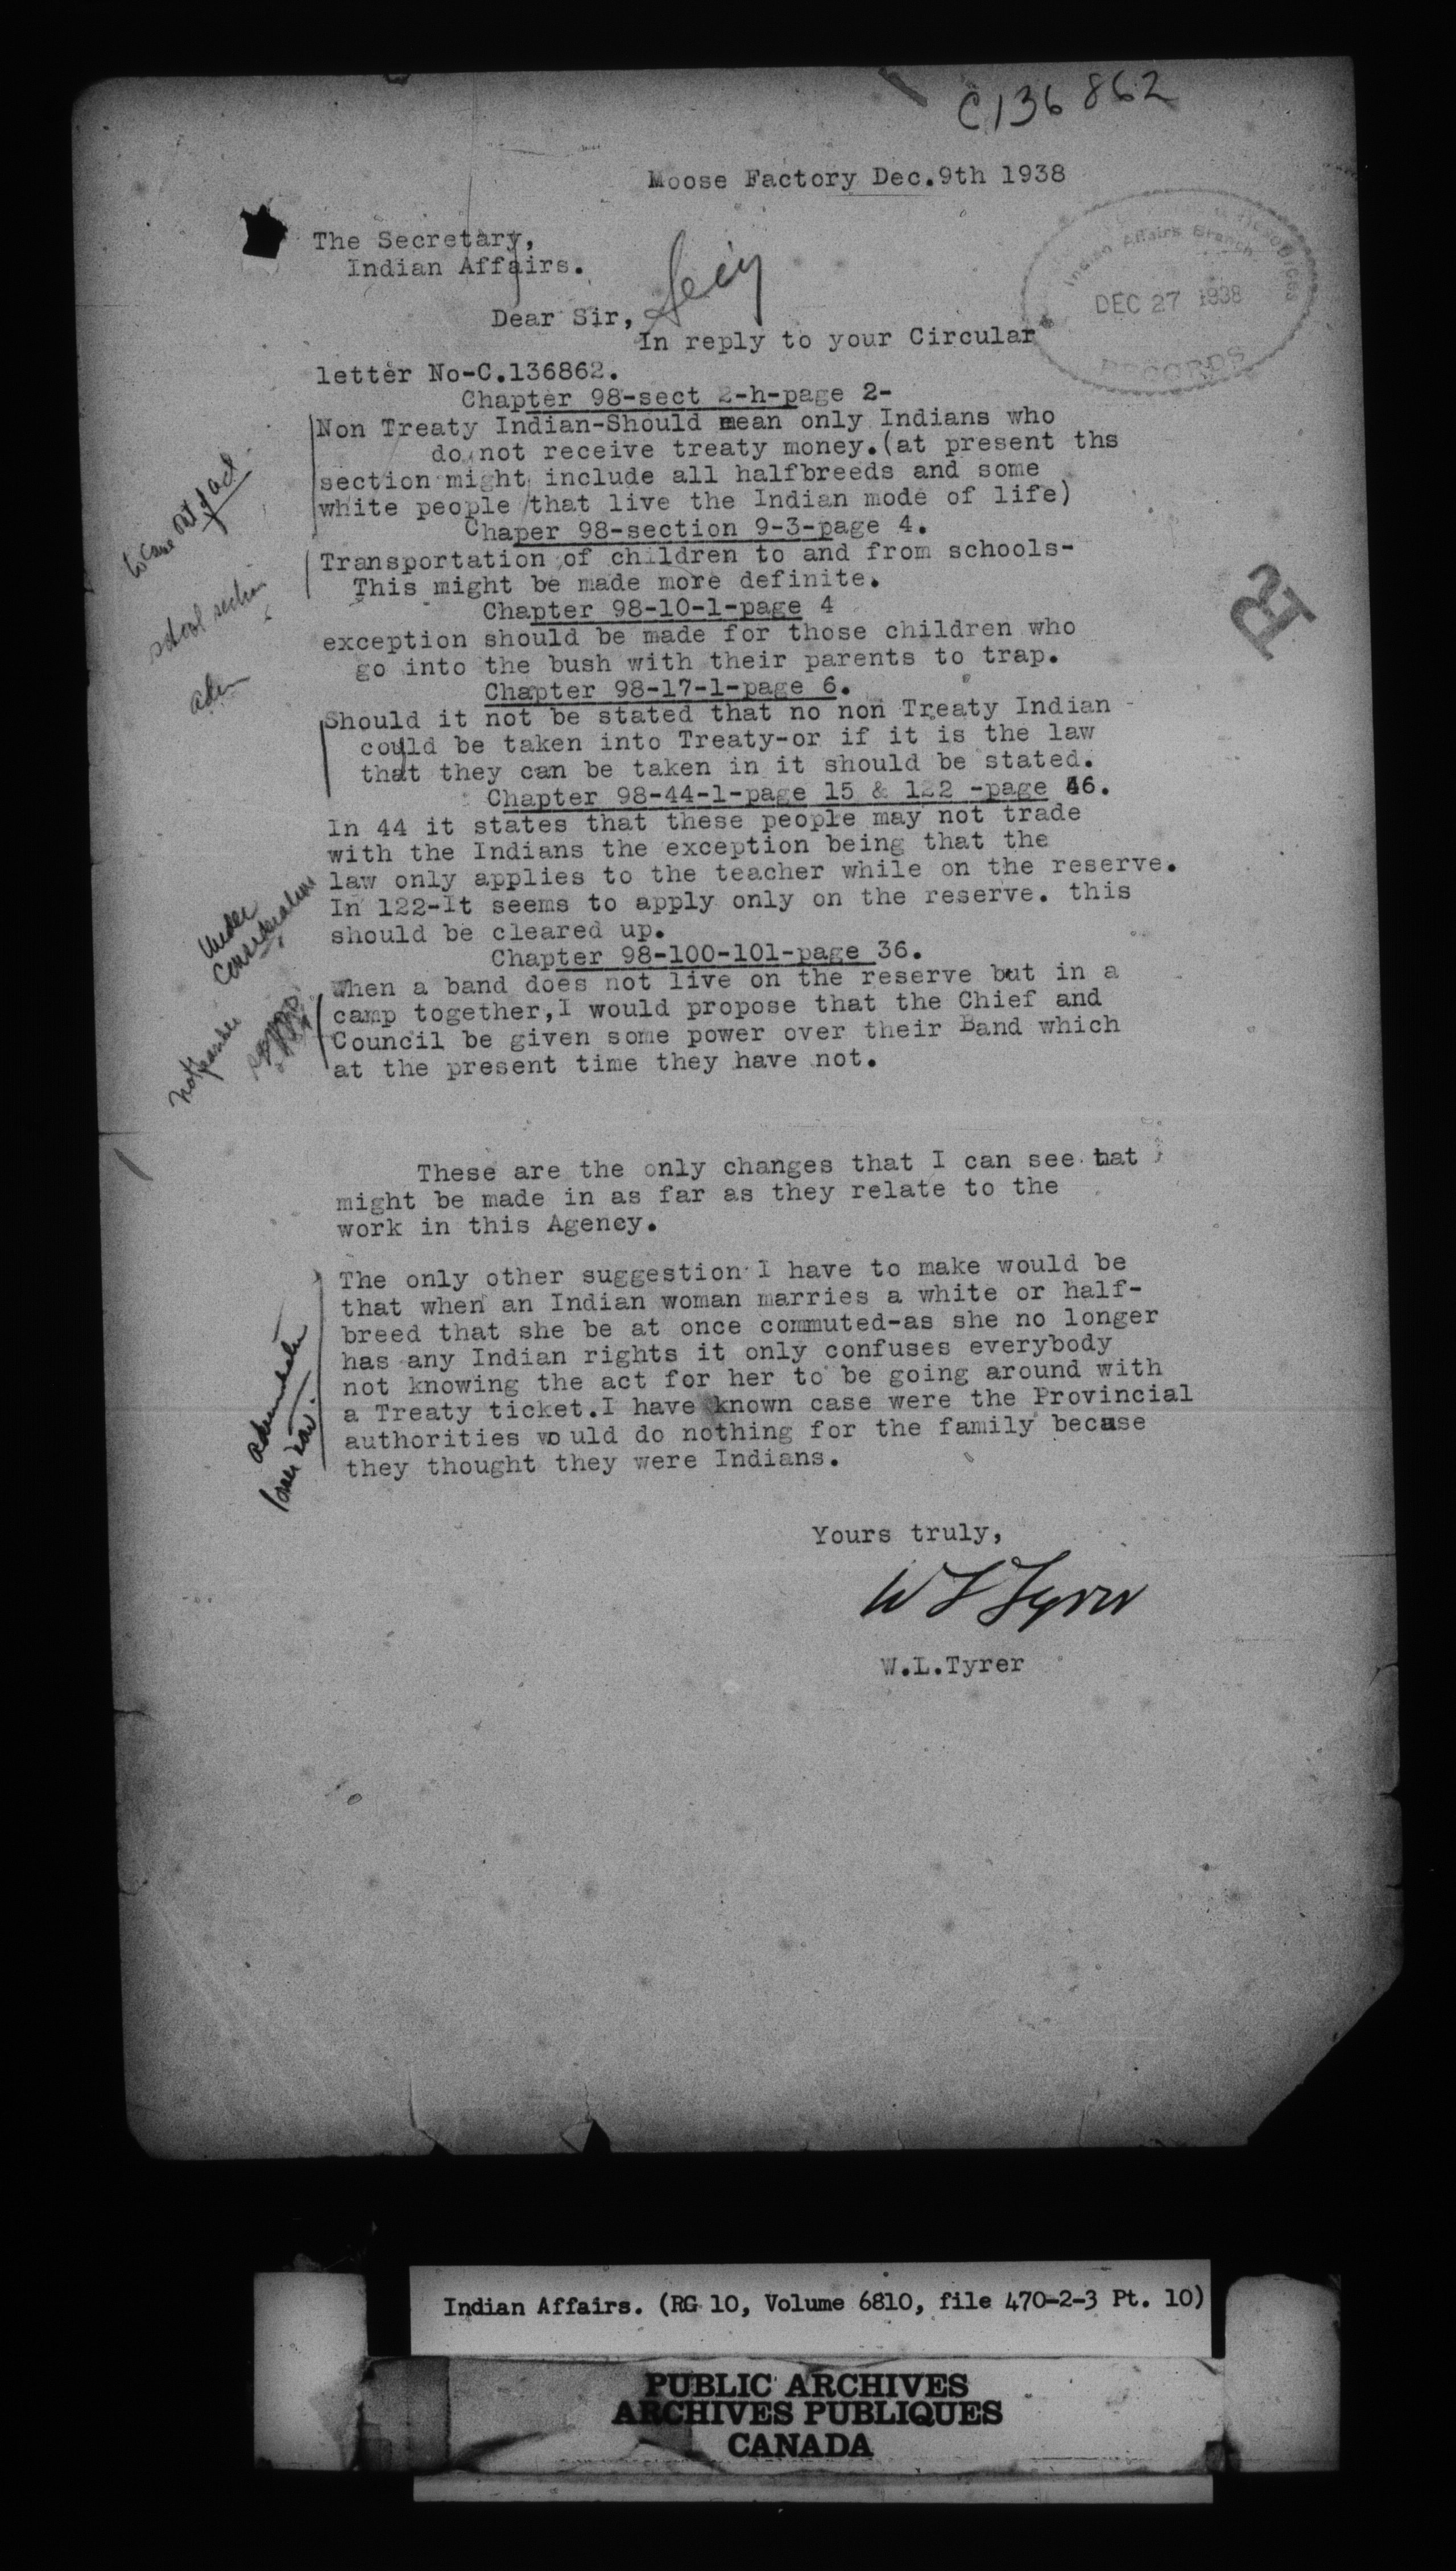 C136862
Moose Factory Dec.9th 1938
The Secretary,
Indian Affairs.
Indian Affairs Branch
DEC 27 1938
RECORDS
Dear Sir,
In reply to your Circular
letter No-C.136862.
Chapter 98-sect 2-h-page 2-
Non Treaty Indian-Should mean only Indians who
do not receive treaty money.(at present ths
section might include all halfbreeds and some
white people that live the Indian mode of life)
Chaper 98-section 9-3-page 4.
Transportation of children to and from schools-
This might be made more definite.
Chapter 98-10-1-page 4
exception should be made for those children who
go into the bush with their parents to trap.
Chapter 98-17-1-page 6.
Should it not be stated that no non Treaty Indian
could be taken into Treaty-or if it is the law
that they can be taken in it should be stated.
Chapter 98-44-1-page 15 & 122 -page 46.
In 44 it states that these people may not trade
with the Indians the exception being that the
law only applies to the teacher while on the reserve.
In 122-It seems to apply only on the reserve. this
should be cleared up.
Chapter 98-100-101-page 36.
When a band does not live on the reserve but in a
camp together,I would propose that the Chief and
Council be given some power over their Band which
at the present time they have not.
school section
Under
Consideration
R
These are the only changes that I can see hat
might be made in as far as they relate to the
work in this Agency.
The only other suggestion I have to make would be
that when an Indian woman marries a white or half-
breed that she be at once commuted-as she no longer
has any Indian rights it only confuses everybody
not knowing the act for her to be going around with
a Treaty ticket.I have known case were the Provincial
authorities would do nothing for the family becuse
they thought they were Indians.
Yours truly,
W L Tyrer
W.L.Tyrer
Indian Affairs. (RG 10, Volume 6810, file 470-2-3 Pt. 10)
PUBLIC ARCHIVES
ARCHIVES PUBLIQUES
CANADA